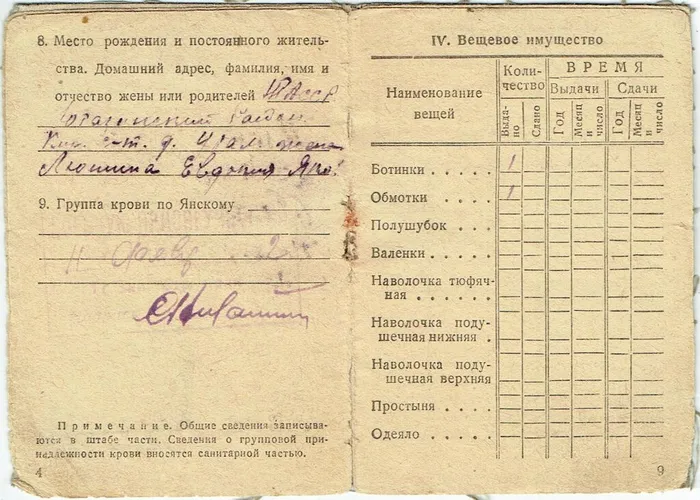 8. Место рождения и постоянного житель-
ства. Домашний адрес, фамилия, имя и
отчество жены или родителей
Евдокия
9. Группа крови по Янскому
Примечание. Общие сведения записыва-
ются в штабе части. Сведения о групповой при-
надлежности крови вносятся санитарной частью.
4
IV. Вещевое имущество
Наименование вещей
Коли-
чество
ВРЕМЯ
Выдачи
Сдачи
Выда-
но
Сдано
Год
Месяц и число
Год
Месяц и число
Ботинки . . . . . 1
Обмотки . . . . . 1
Полушубок . . .
Валенки . . . . .
Наволочка тюфяч-
ная . . . . . .
Наволочка поду-
шечная нижняя .
Наволочка поду-
шечная верхняя
Простыня . . . .
Одеяло . . . . .
9